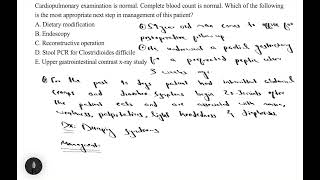 Cardiopulmonary examination is normal. Complete blood count is normal. Which of the following
is the most appropriate next step in management of this patient?
A. Dietary modification
B. Endoscopy
C. Reconstructive operation
D. Stool PCR for Clostridioides difficile
E. Upper gastrointestinal contrast x-ray study
59 year old male comes to office for
postoperative follow up
He underwent a partial gastrectomy
for a perforated peptic ulcer
3 weeks ago
For the past 10 days patient had intermittent abdominal
cramps and diarrhea symptoms begin 20-30 mins after
the patient eats and are associated with nausea,
weakness, palpitations, light headedness & diaphoresis
Dx: Dumping Syndrome
Management: